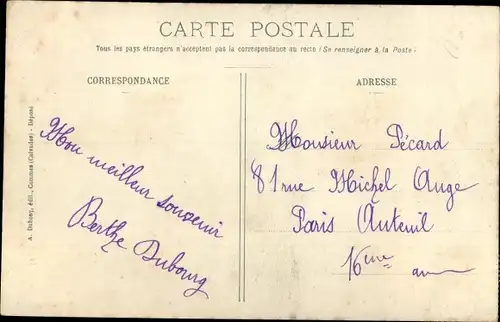 CARTE POSTALE
Tous les pays étrangers n'acceptent pas la correspondance au recto (Se renseigner à la Poste)
CORRESPONDANCE
ADRESSE
Mon meilleur souvenir
Berthe Dubourg
Monsieur Pécard
81 rue Michel Ange
Paris Auteuil
16eme
A. Dubosq, édit., Commes (Calvados) - Déposé